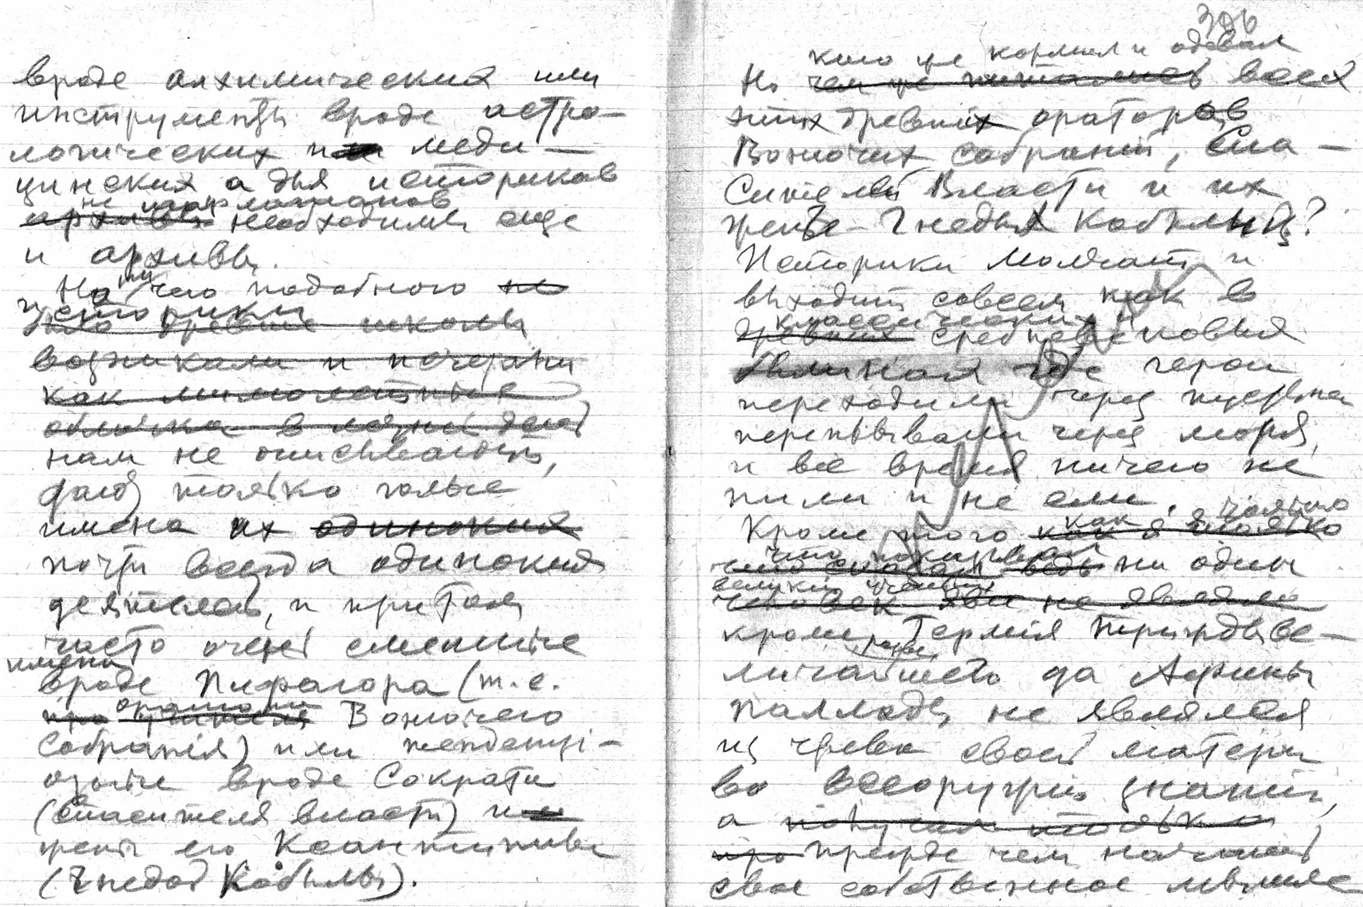 вроде алхимических или
инструменты вроде астро-
логических и меди-
цинских а для историков
не
архивы необходимы еще
и архивы.
Но ничего подобного не
историки
древние школы
возникали и исчезали
как мимолетные
облачка в
нам не описывают,
дают только голые
имена их одинокия
почти всегда одиноких
деятелей, и притом
часто очень смешные
имена
вроде Пифагора (т.е.
оратора
Вонючего
Собрания) или тенденци-
озные вроде Сократа
(спасителя власти) и
жены его Ксантиппы
(Гнедой Кобылы).
396
кто же кормил и одевал
Но чем же питались всех
этих древних ораторов
Вонючих собраний, Спа-
сителей Власти и их
жен - Гнедых Кобылиц?
Историки молчат и
выходит совсем как в
классических и
древних средневековых
былинах где герои
переходили через пустыни
переплывали через моря,
и все время ничего не
пили и не ели.
только
Кроме того как я только
как
что показал
что сказал ведь ни один
великий ученый
человек не
кроме Гермия Триждыве-
разве
личайшего да Афины
Паллады не являлся
из чрева своей матери
во всеоружии знаний,
а
прежде чем начинать
свое собственное